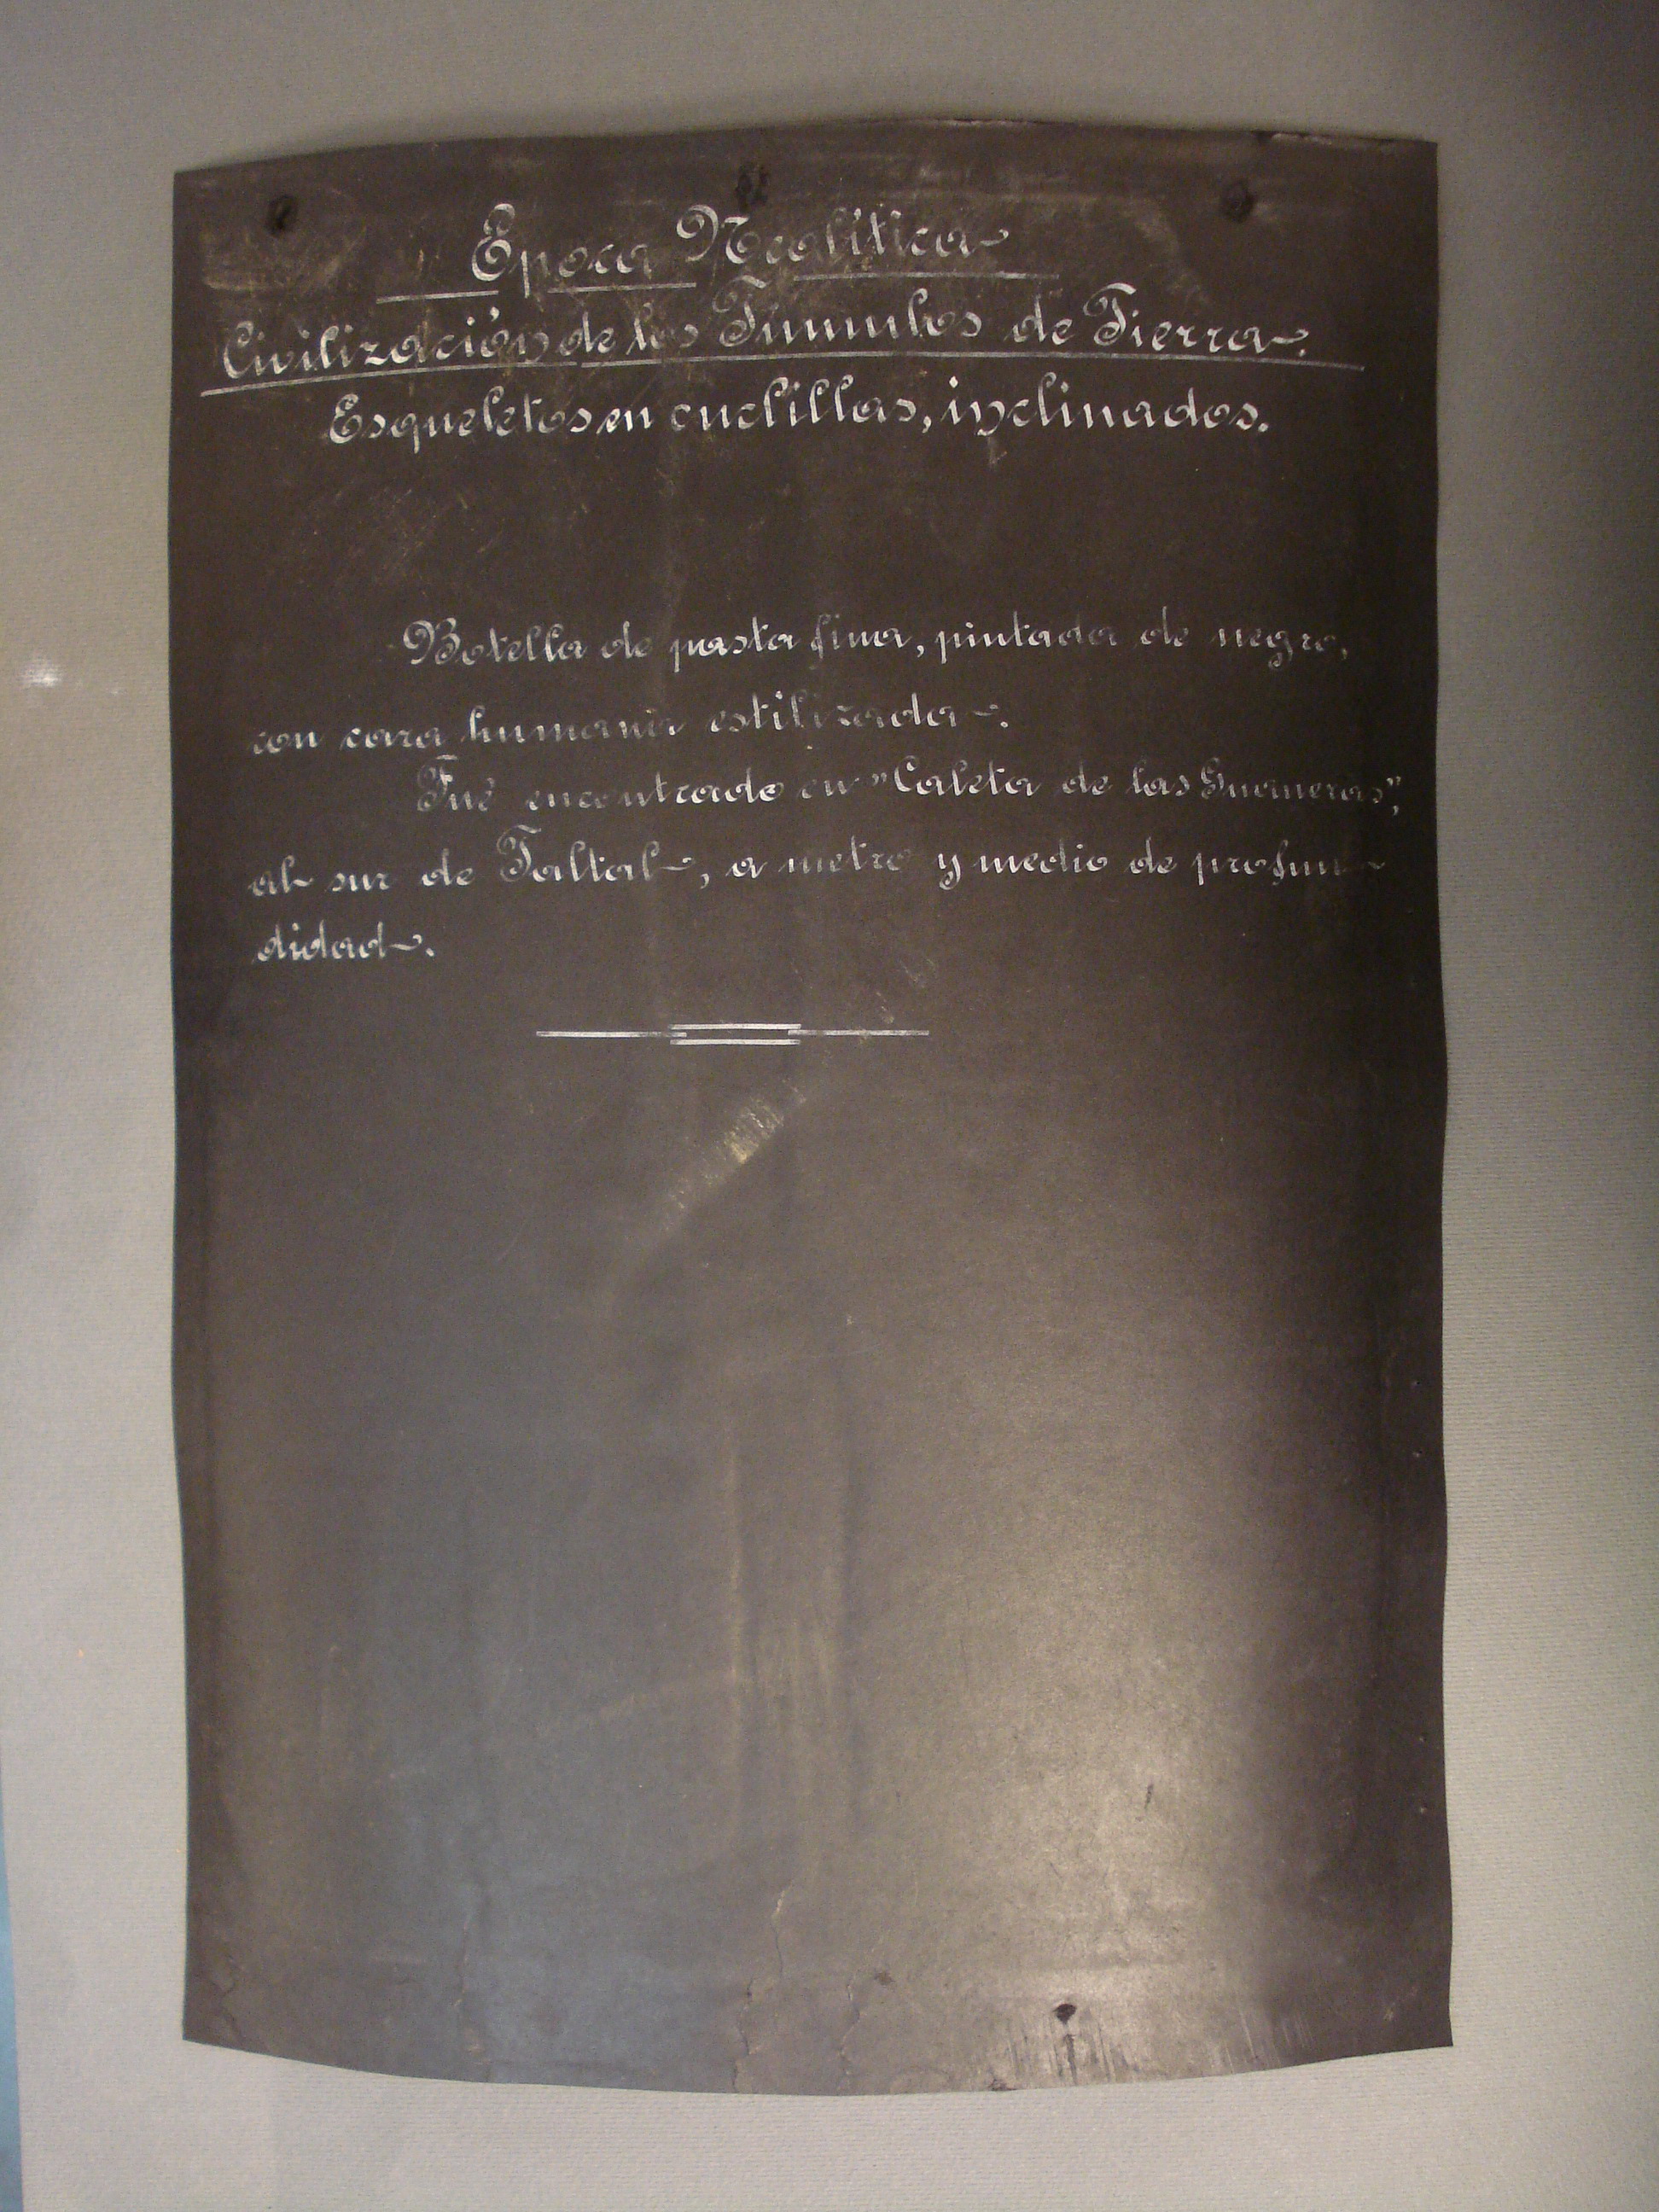 Epoca Neolítica
Civilización de los Tumulos de Tierra.
Esqueletos en cuclillas, inclinados.
Botella de pasta fina, pintada de negro,
con cara humana estilizada.
Fué encontrado en "Caleta de las Guaneras",
al sur de Taltal, a metro y medio de profun-
didad.